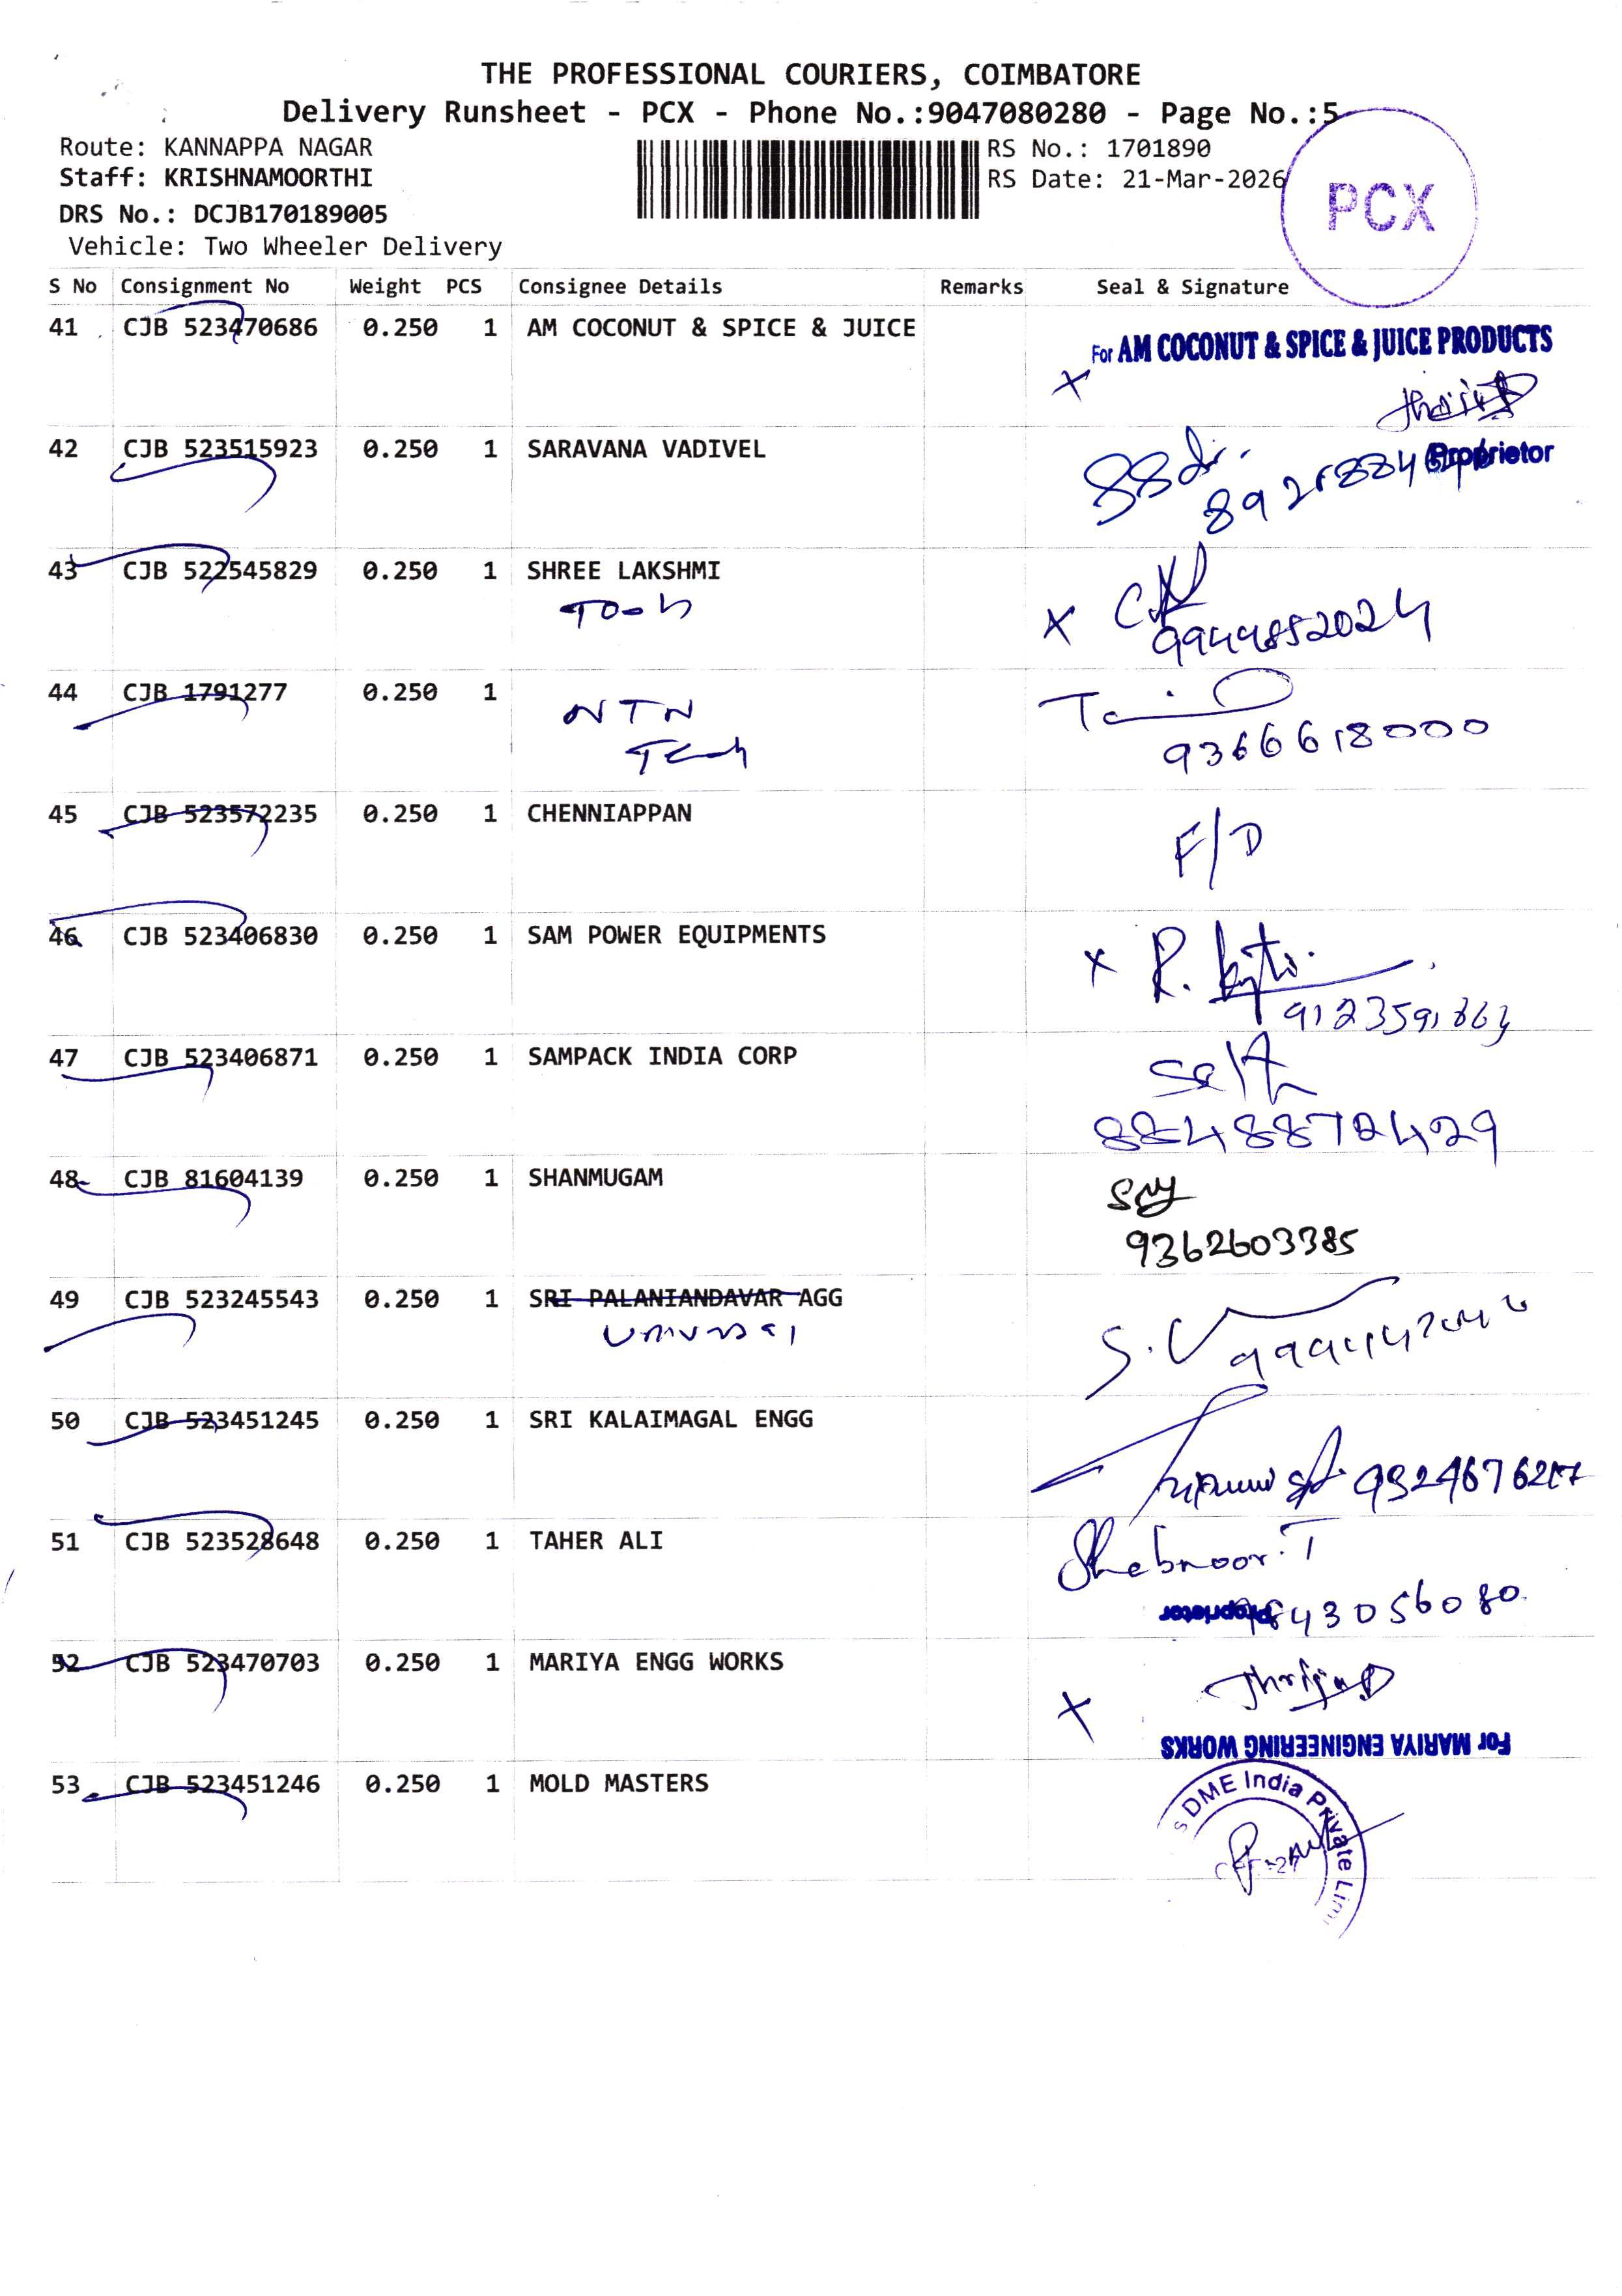 THE PROFESSIONAL COURIERS, COIMBATORE
Delivery Runsheet - PCX - Phone No.:9047080280 - Page No.:5
Route: KANNAPPA NAGAR
RS No.: 1701890
Staff: KRISHNAMOORTHI
RS Date: 21-Mar-2026
PCX
DRS No.: DCJB170189005
Vehicle: Two Wheeler Delivery
S No Consignment No Weight PCS Consignee Details Remarks Seal & Signature
41 CJB 523470686 0.250 1 AM COCONUT & SPICE & JUICE
For AM COCONUT & SPICE & JUICE PRODUCTS
X
Proprietor
42 CJB 523515923 0.250 1 SARAVANA VADIVEL
43 CJB 522545829 0.250 1 SHREE LAKSHMI
X
9944852024
44 CJB 1791277 0.250 1
NTN
Tech
9366618000
45 CJB 523572235 0.250 1 CHENNIAPPAN
F/D
46 CJB 523406830 0.250 1 SAM POWER EQUIPMENTS
X R.
47 CJB 523406871 0.250 1 SAMPACK INDIA CORP
Self
48 CJB 81604139 0.250 1 SHANMUGAM
9362603385
49 CJB 523245543 0.250 1 SRI PALANIANDAVAR AGG
S.V
50 CJB 523451245 0.250 1 SRI KALAIMAGAL ENGG
51 CJB 523528648 0.250 1 TAHER ALI
Shebnoor.T
Proprietor
9843056080
52 CJB 523470703 0.250 1 MARIYA ENGG WORKS
X
For MARIYA ENGINEERING WORKS
53 CJB 523451246 0.250 1 MOLD MASTERS
DME India Private Lim